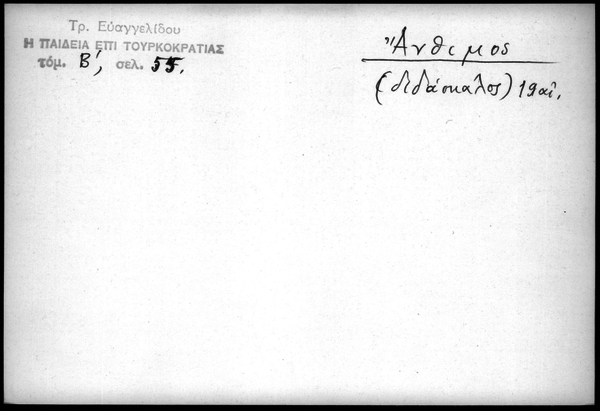 Τρ. Εὐαγγελίδου
Η ΠΑΙΔΕΙΑ ΕΠΙ ΤΟΥΡΚΟΚΡΑΤΙΑΣ
τόμ. Β', σελ. 55.
Ἄνθιμος
(διδάσκαλος) 19 αἰ.